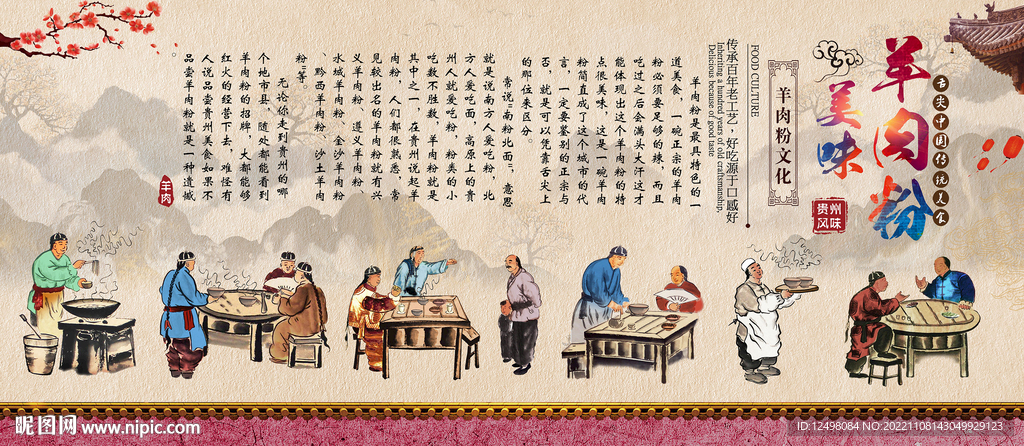 羊肉粉
美味
舌尖中国传统美食
贵州
风味
羊肉粉文化
FOOD CULTURE
传承百年老工艺，好吃源于口感好
Inheriting a hundred years of old craftsmanship,
Delicious because of good taste
羊肉粉是最具特色的一
道美食，一碗正宗的羊肉
粉必须要足够的辣，而且
吃过之后会满头大汗这才
能体现出这个羊肉粉的特
点很美味，这是一碗羊肉
粉简直成了这个城市的代
言，一定要鉴别的正宗与
否，就是可以凭靠舌尖上
的那位来区分。
常说“南粉北面”，意思
就是说南方人爱吃粉，北
方人爱吃面，高原上的贵
州人就爱吃粉，粉类的小
吃数不胜数，羊肉粉就是
其中之一，在贵州说起羊
肉粉，人们都很熟悉，常
见较出名的羊肉粉就有兴
义羊肉粉、遵义羊肉粉、
水城羊肉粉、金沙羊肉粉
、黔西羊肉粉、沙土羊肉
粉”等。
无论你走到贵州的哪
个地市县，随处都能看到
羊肉粉的招牌，大都能够
红火的经营下去，难怪有
人说品尝贵州美食如果不
品尝羊肉粉就是一种遗憾
。
羊肉
昵图网 www.nipic.com
ID:12498084 NO:20221108143049929123